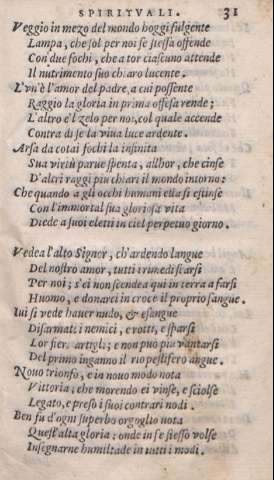 SPIRITVALI. 31
Veggio in mezo del mondo hoggi fulgente
Lampa, che sol per noi se stessa offende
Con due fochi, che a tor ciascuno attende
Il nutrimento suo chiaro lucente.
L'vn'è l'amor del padre, a cui possente
Raggio la gloria in prima offesa rende;
L'altro e'l zelo per noi, col quale accende
Contra di se la viua luce ardente.
Arsa da cotai fochi la infinita
Sua virtù parue spenta, allhor, che cinse
D'altri raggi piu chiari il mondo intorno:
Che quando a gli occhi humani ella si estinse
Con l'immortal sua gloriosa vita
Diede a suoi eletti in ciel perpetuo giorno.
Vedea l'alto Signor, ch'ardendo langue
Del nostro amor, tutti i rimedi scarsi
Per noi; s'ei non scendea qui in terra a farsi
Huomo, e donarci in croce il proprio sangue.
Iui si vede hauer nudo, & esangue
Disarmati i nemici, e rotti, e sparsi
Lor fieri artigli; e non può piu vantarsi
Del primo inganno il rio pestifero angue.
Nouo trionfo, e in nouo modo nota
Vittoria, che morendo ei vinse, e sciolse
Legato, e preso i suoi contrari nodi.
Ben fu d'ogni superbo orgoglio vota
Quest'alta gloria; onde in se stesso volse
Insegnarne humiltade in tutti i modi.